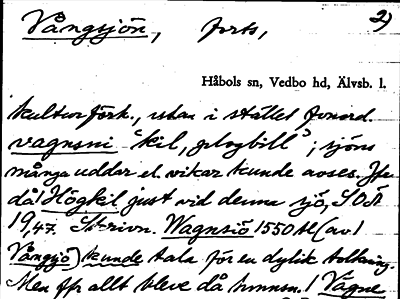 Vångsjön, forts, 2)
Håbols sn, Vedbo hd, Älvsb. l.
kultur förk., utan i stället fonord.
vagnsni "kil, plogbill"; sjöns
många uddar el. vikar kunde avses. Jfr
då! Högkil just vid denna sjö, SOÄ
19,47. Skrivn. Wagnsiö 1550 tl (av!
Vångsjö) kunde tala för en dylik tolkning.
Men fr allt bleve då hmnsn.! Vägne